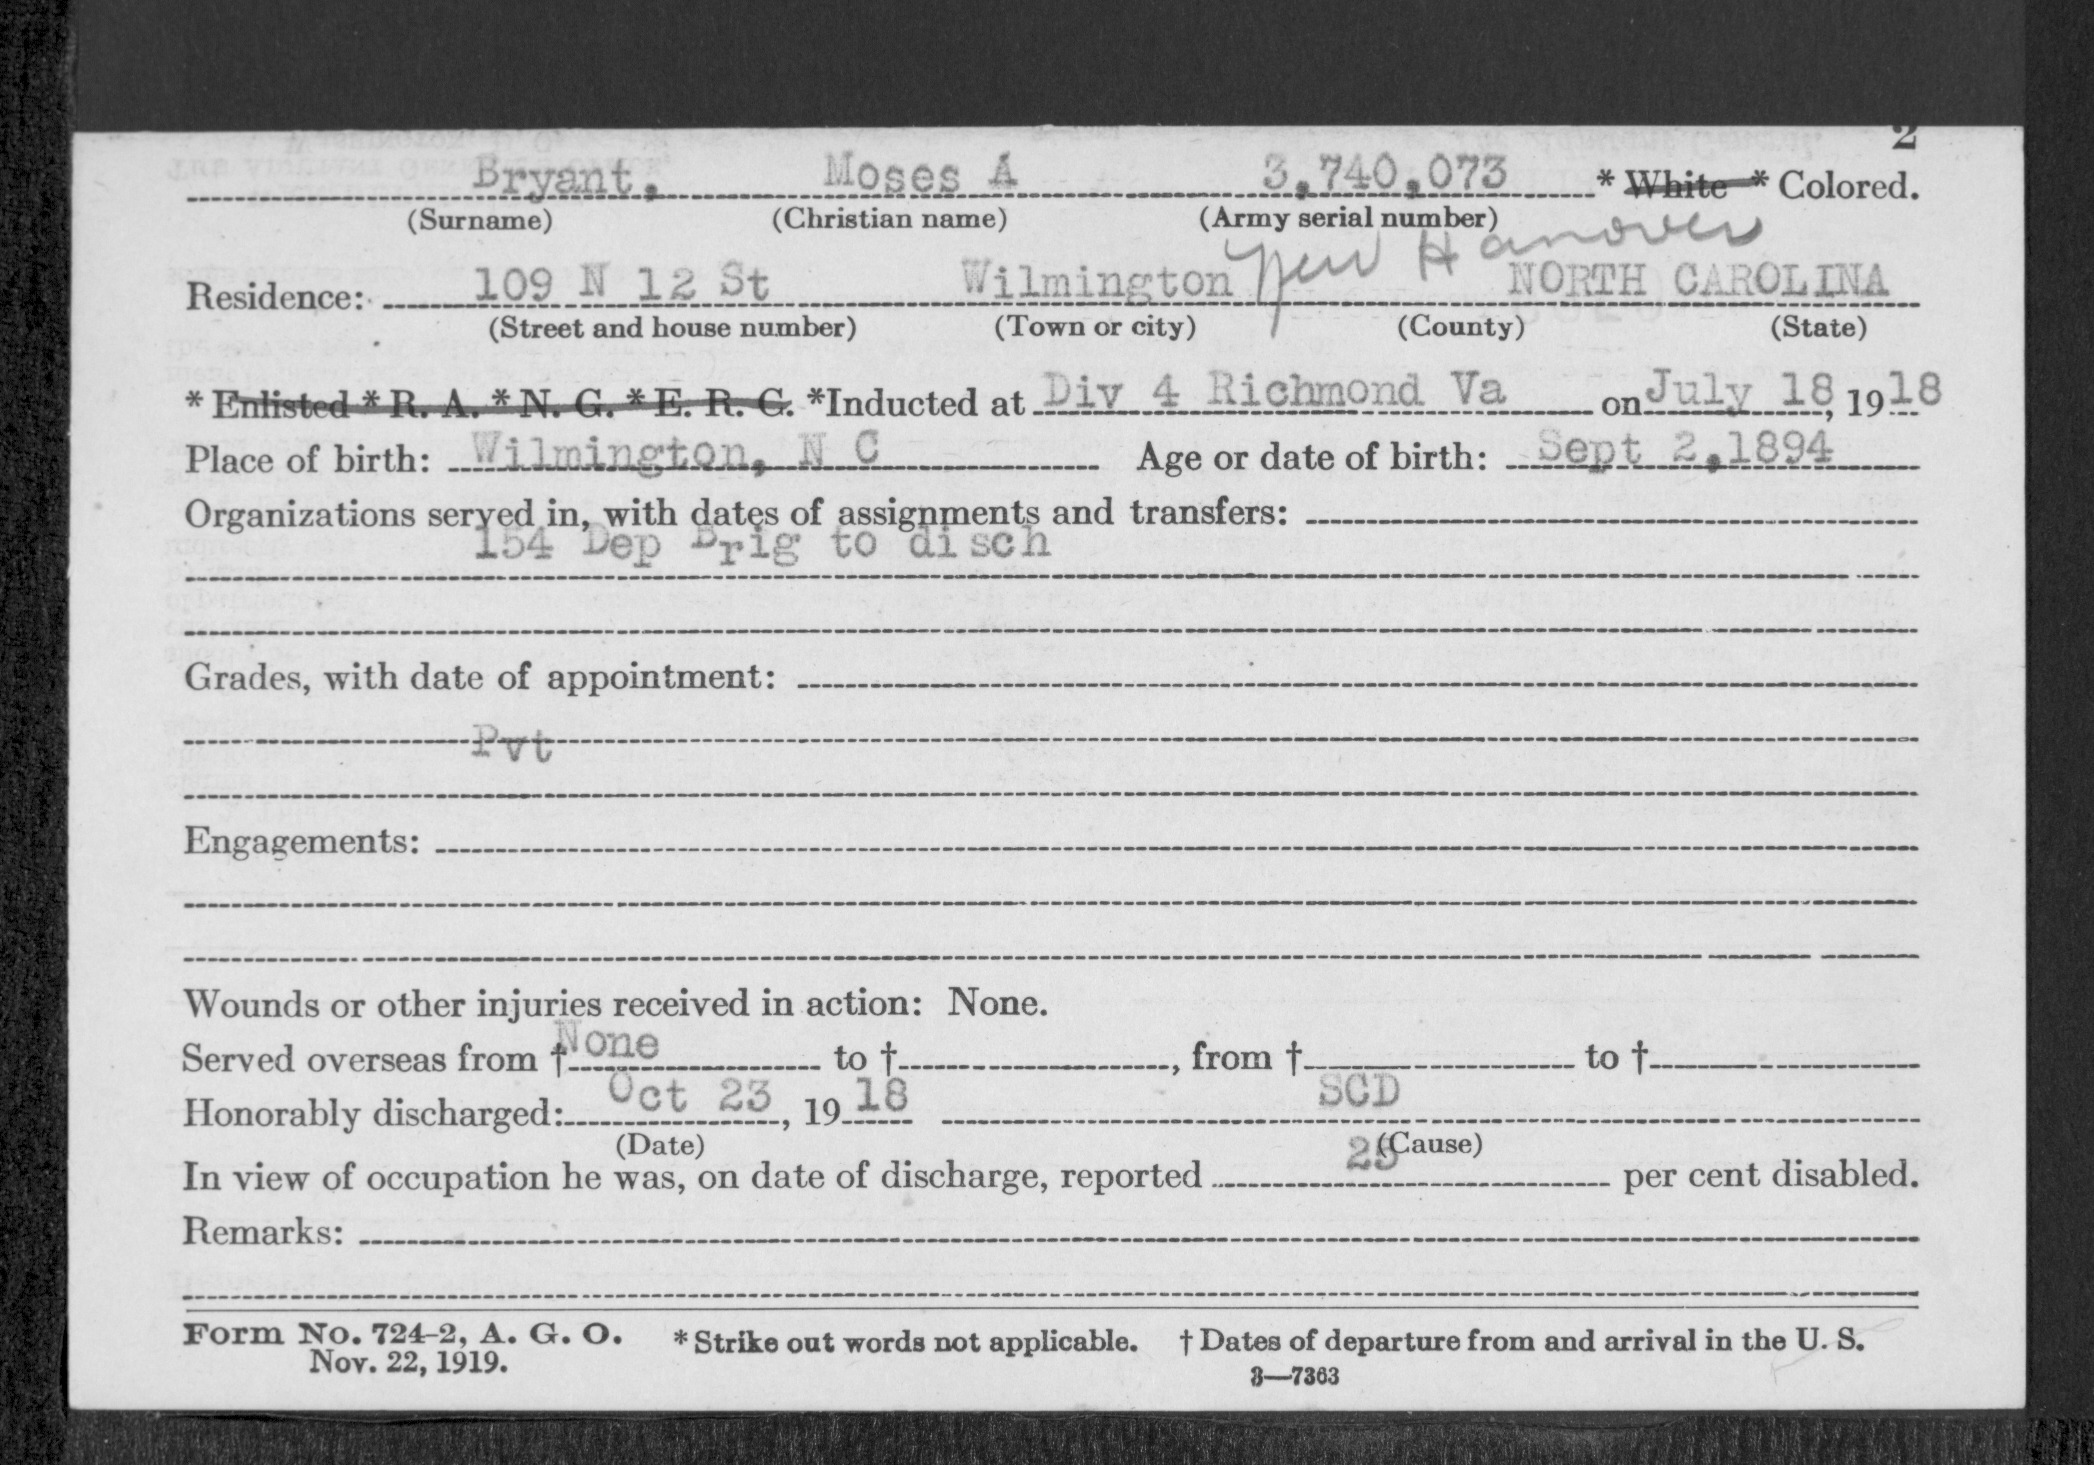 2
Bryant, Moses A 3,740,073 * White * Colored.
(Surname) (Christian name) (Army serial number)
Residence: 109 N 12 St Wilmington New Hanover NORTH CAROLINA
(Street and house number) (Town or city) (County) (State)
* Enlisted * R. A. * N. G. * E. R. C. *Inducted at Div 4 Richmond Va on July 18, 1918
Place of birth: Wilmington, N C Age or date of birth: Sept 2,1894
Organizations served in, with dates of assignments and transfers:
154 Dep Brig to disch
Grades, with date of appointment:
Pvt
Engagements:
Wounds or other injuries received in action: None.
Served overseas from † None to †, from † to †
Honorably discharged: Oct 23, 1918 SCD
(Date) (Cause)
In view of occupation he was, on date of discharge, reported 25 per cent disabled.
Remarks:
Form No. 724-2, A. G. O. * Strike out words not applicable. † Dates of departure from and arrival in the U. S.
Nov. 22, 1919. 3—7363